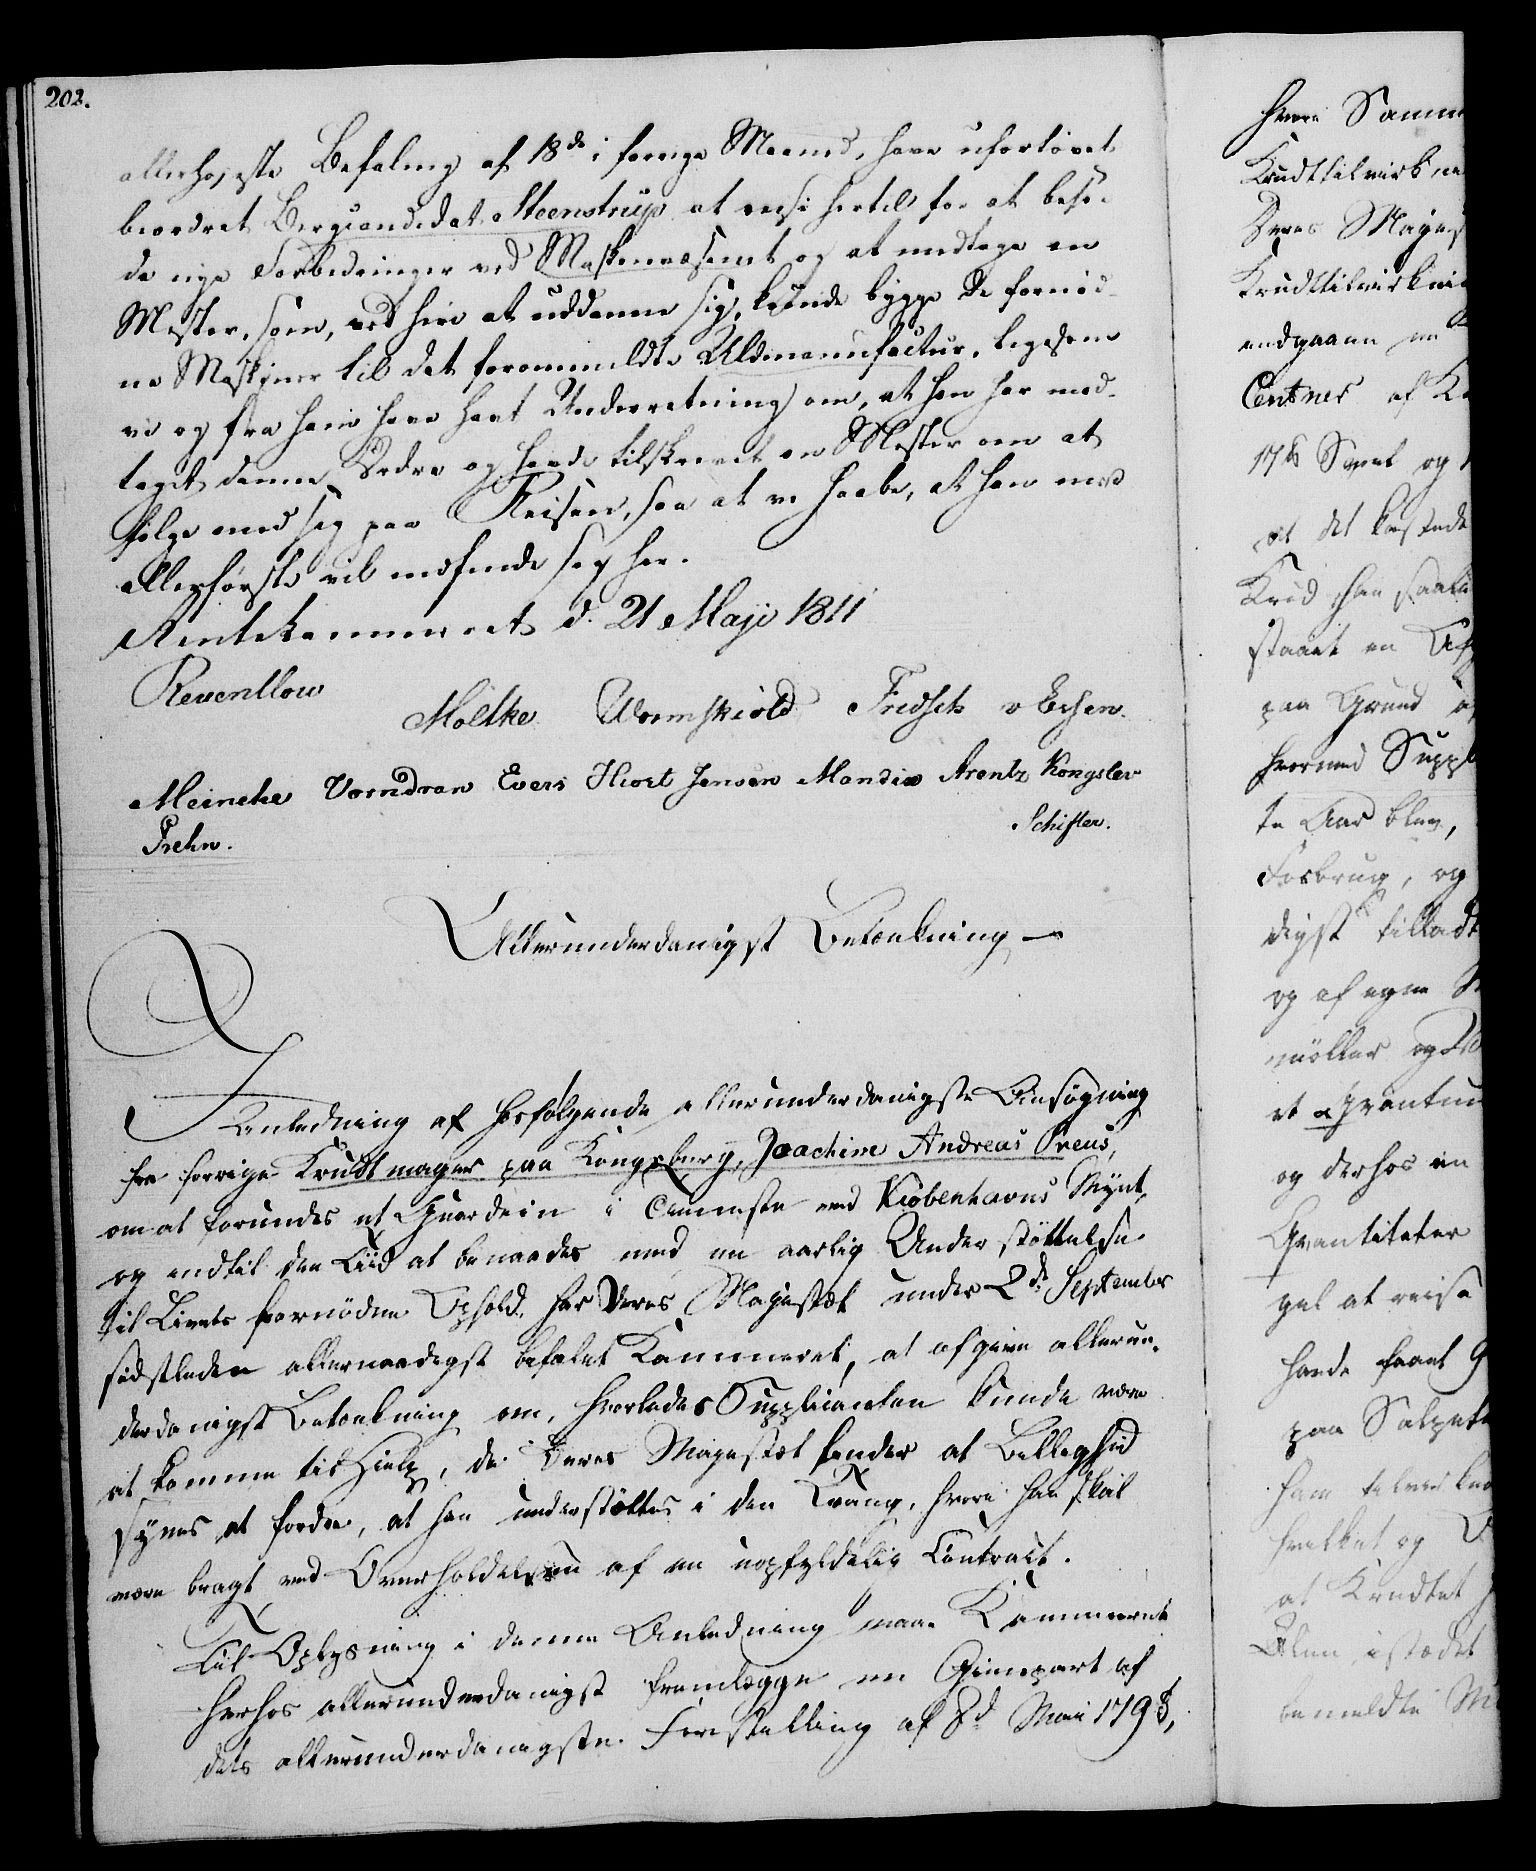 202.
allerhøjeste Befaling af 18de i forrige Maaned, have ufortøvet
beordret Bergcandidat Steenstrup at reise hertil for at bese
de nye Forbedringer ved Maskinvæsenet og at medtage en
Mester, som, ved her at uddanne sig, kunde bygge de fornød-
ne Maskiner til det foranmeldte Uldmanufactur, ligesom
vi og fra ham have havt Underretning om, at han har mod-
taget denne Ordre og havde tilskrevet en Mester om at
følge med sig paa Reisen, saa at vi haabe, at han med
allerførste vil indfinde sig her.
Rentekammeret d. 21 Maji 1811
Reventlow
Moltke Wormskiold Fridsch v Essen.
Meincke Vorndran Evers Hiort Jensen Mandix Arentz Kongslev
Prehn. Schifter.
Allerunderdanigst Betænkning
I
Anledning af hosfølgende allerunderdanigste Ansøgning
fra forrige Krudtmager paa Kongsberg, Joachim Andreas Preus,
om at forundes et Guardein i ved Kiøbenhavns Mynt,
og indtil den Tiid at benaades med en aarlig Understøttelse
til Livets fornødne Ophold, har Deres Majestæt under 2de September
sidstleden allernaadigst befalet Kammeret, at afgive allerun-
derdanigst Betænkning om, hvorledes Supplicanten kunde være
at komme til Hielp, da Deres Majestæt finder at Billighed
synes at fordre, at han understøttes i den Trang, hvori han skal
være bragt ved Overholdelsen af en uopfyldelig Contract.
Til Oplysning i denne Anledning maae Kammeret
herhos allerunderdanigst fremlægge en Gienpart af
dets allerunderdanigste Forestilling af 8d Mai 1798,
hvori Samm
Krudttilvirkne
Deres Majest
Krudttilvirkni
andgaaen en
Centner af K
17 og
at det kostede
Krud han saale
staaet en
paa Grund a
hvormed Suppl
te Aar blev,
Forbrug, og
digst tilladt
og af egne M
møller og
et Qvantum
og derhos en
Qvantiteter
gel at reise
havde faaet
paa Salpete
ham
hvilket og
at Krudtet
istedet
bemeldte M